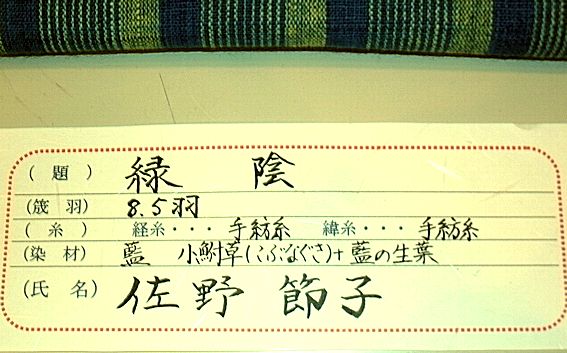 (題) 緑陰
(筬羽) 8.5羽
(糸) 経糸・・・手紡糸 緯糸・・・手紡糸
(染材) 藍 小鮒草(こぶなぐさ)+藍の生葉
(氏名) 佐野 節子